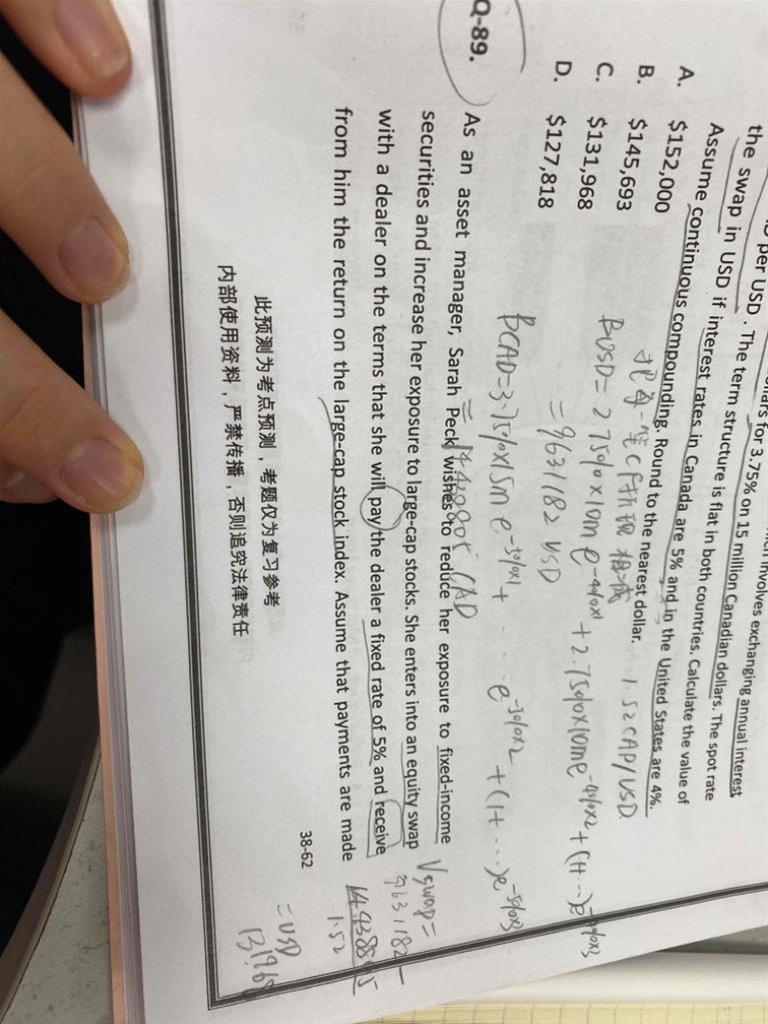 involves exchanging annual interest
for 3.75% on 15 million Canadian dollars. The spot rate
per USD. The term structure is flat in both countries. Calculate the value of
the swap in USD if interest rates in Canada are 5% and in the United States are 4%.
Assume continuous compounding. Round to the nearest dollar. 1.52 CAD/USD
A. $152,000
B. $145,693
C. $131,968
D. $127,818
BUSD = 2.75%×10m e^-4%×1 + 2.75%×10m e^-4%×2 + (1+...)e^-4%×3
= 9631182 USD
BCAD = 3.75%×15m e^-5%×1 + ... e^-5%×2 + (1+...)e^-5%×3
CAD
Vswap =
9631182 -
1.52
= USD
Q-89.
As an asset manager, Sarah Peck wishes to reduce her exposure to fixed-income
securities and increase her exposure to large-cap stocks. She enters into an equity swap
with a dealer on the terms that she will pay the dealer a fixed rate of 5% and receive
from him the return on the large-cap stock index. Assume that payments are made
38-62
此预测为考点预测，考题仅为复习参考
内部使用资料，严禁传播，否则追究法律责任